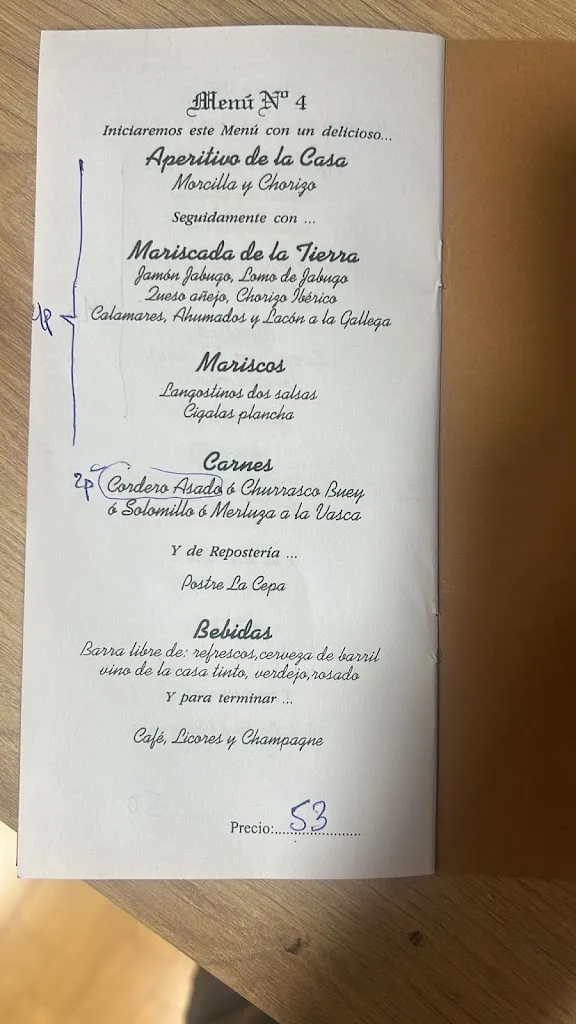 Menú Nº 4
Iniciaremos este Menú con un delicioso...
Aperitivo de la Casa
Morcilla y Chorizo
Seguidamente con ...
Mariscada de la Tierra
Jamón Jabugo, Lomo de Jabugo
Queso añejo, Chorizo Ibérico
Calamares, Ahumados y Lacón a la Gallega
Mariscos
Langostinos dos salsas
Cigalas plancha
Carnes
2p Cordero Asado ó Churrasco Buey
ó Solomillo ó Merluza a la Vasca
Y de Repostería ...
Postre La Cepa
Bebidas
Barra libre de: refrescos,cerveza de barril
vino de la casa tinto, verdejo,rosado
Y para terminar ...
Café, Licores y Champagne
Precio:..53..................